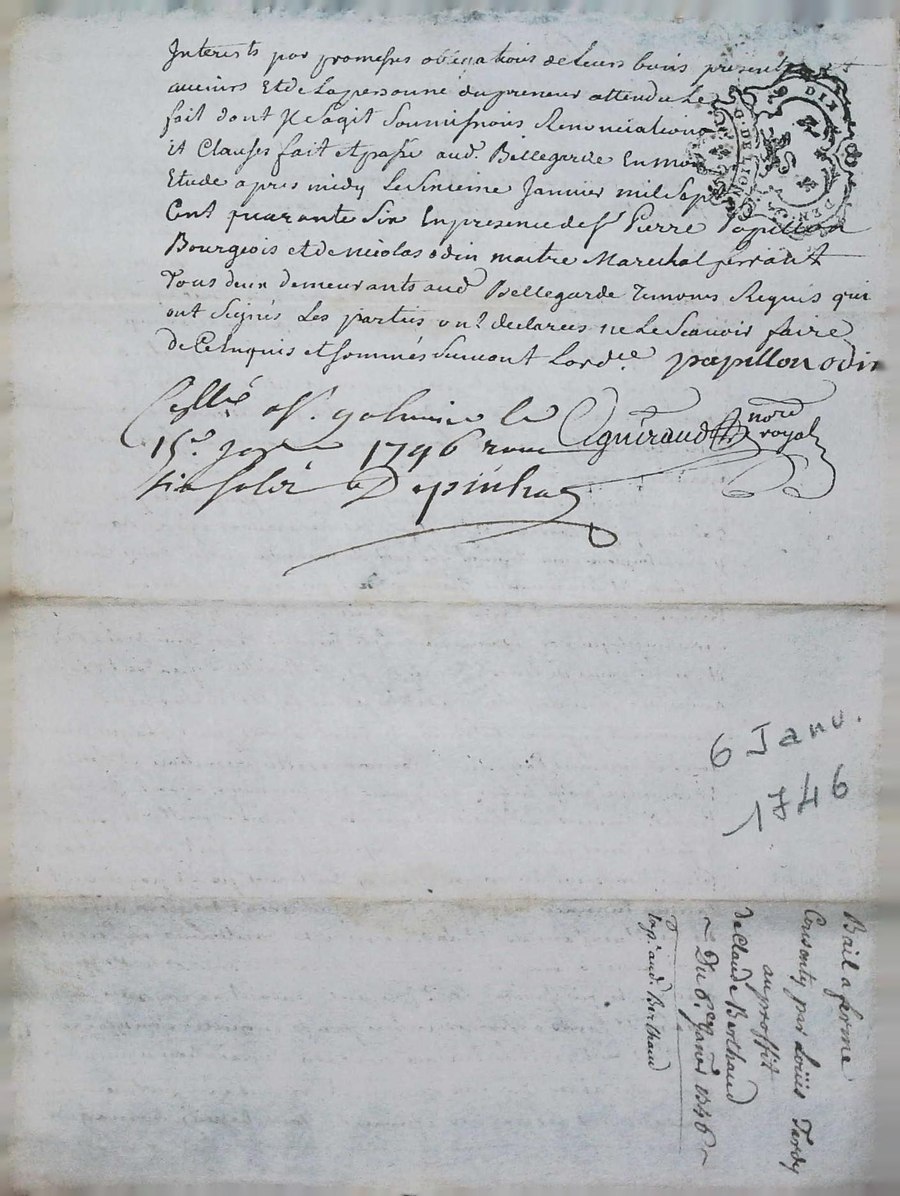 Interests par promesses obligations de Leurs biens presents et
avenirs Et de La personne du preneur attendu Le
fait dont Il Sagit Soumissions Renonciations
et Clauses fait et passé aud. Bellegarde En mon
Etude apres midy Le Sixieme Janvier mil Sept
Cent quarante Six En presence de Sr Pierre Papillon
Bourgeois et de nicolas odin maitre Marechal ferrant
Tous deux demeurants aud Bellegarde Temoins Requis qui
ont Signés Les parties ont declarées ne Le Scavoir faire
de Ce Enquis et Sommés Suivant Lordce. papillon odin
Cllé a St. galmier le
guiraud nore royal
15e 1746
6 Janv.
1746
Bail a ferme
Consenty par Loüis Terdy
au proffit
de Claude Berthaud
Du 6e Janvr 1746
aud. Berthaud
DIX
G. DE LION
DEN.